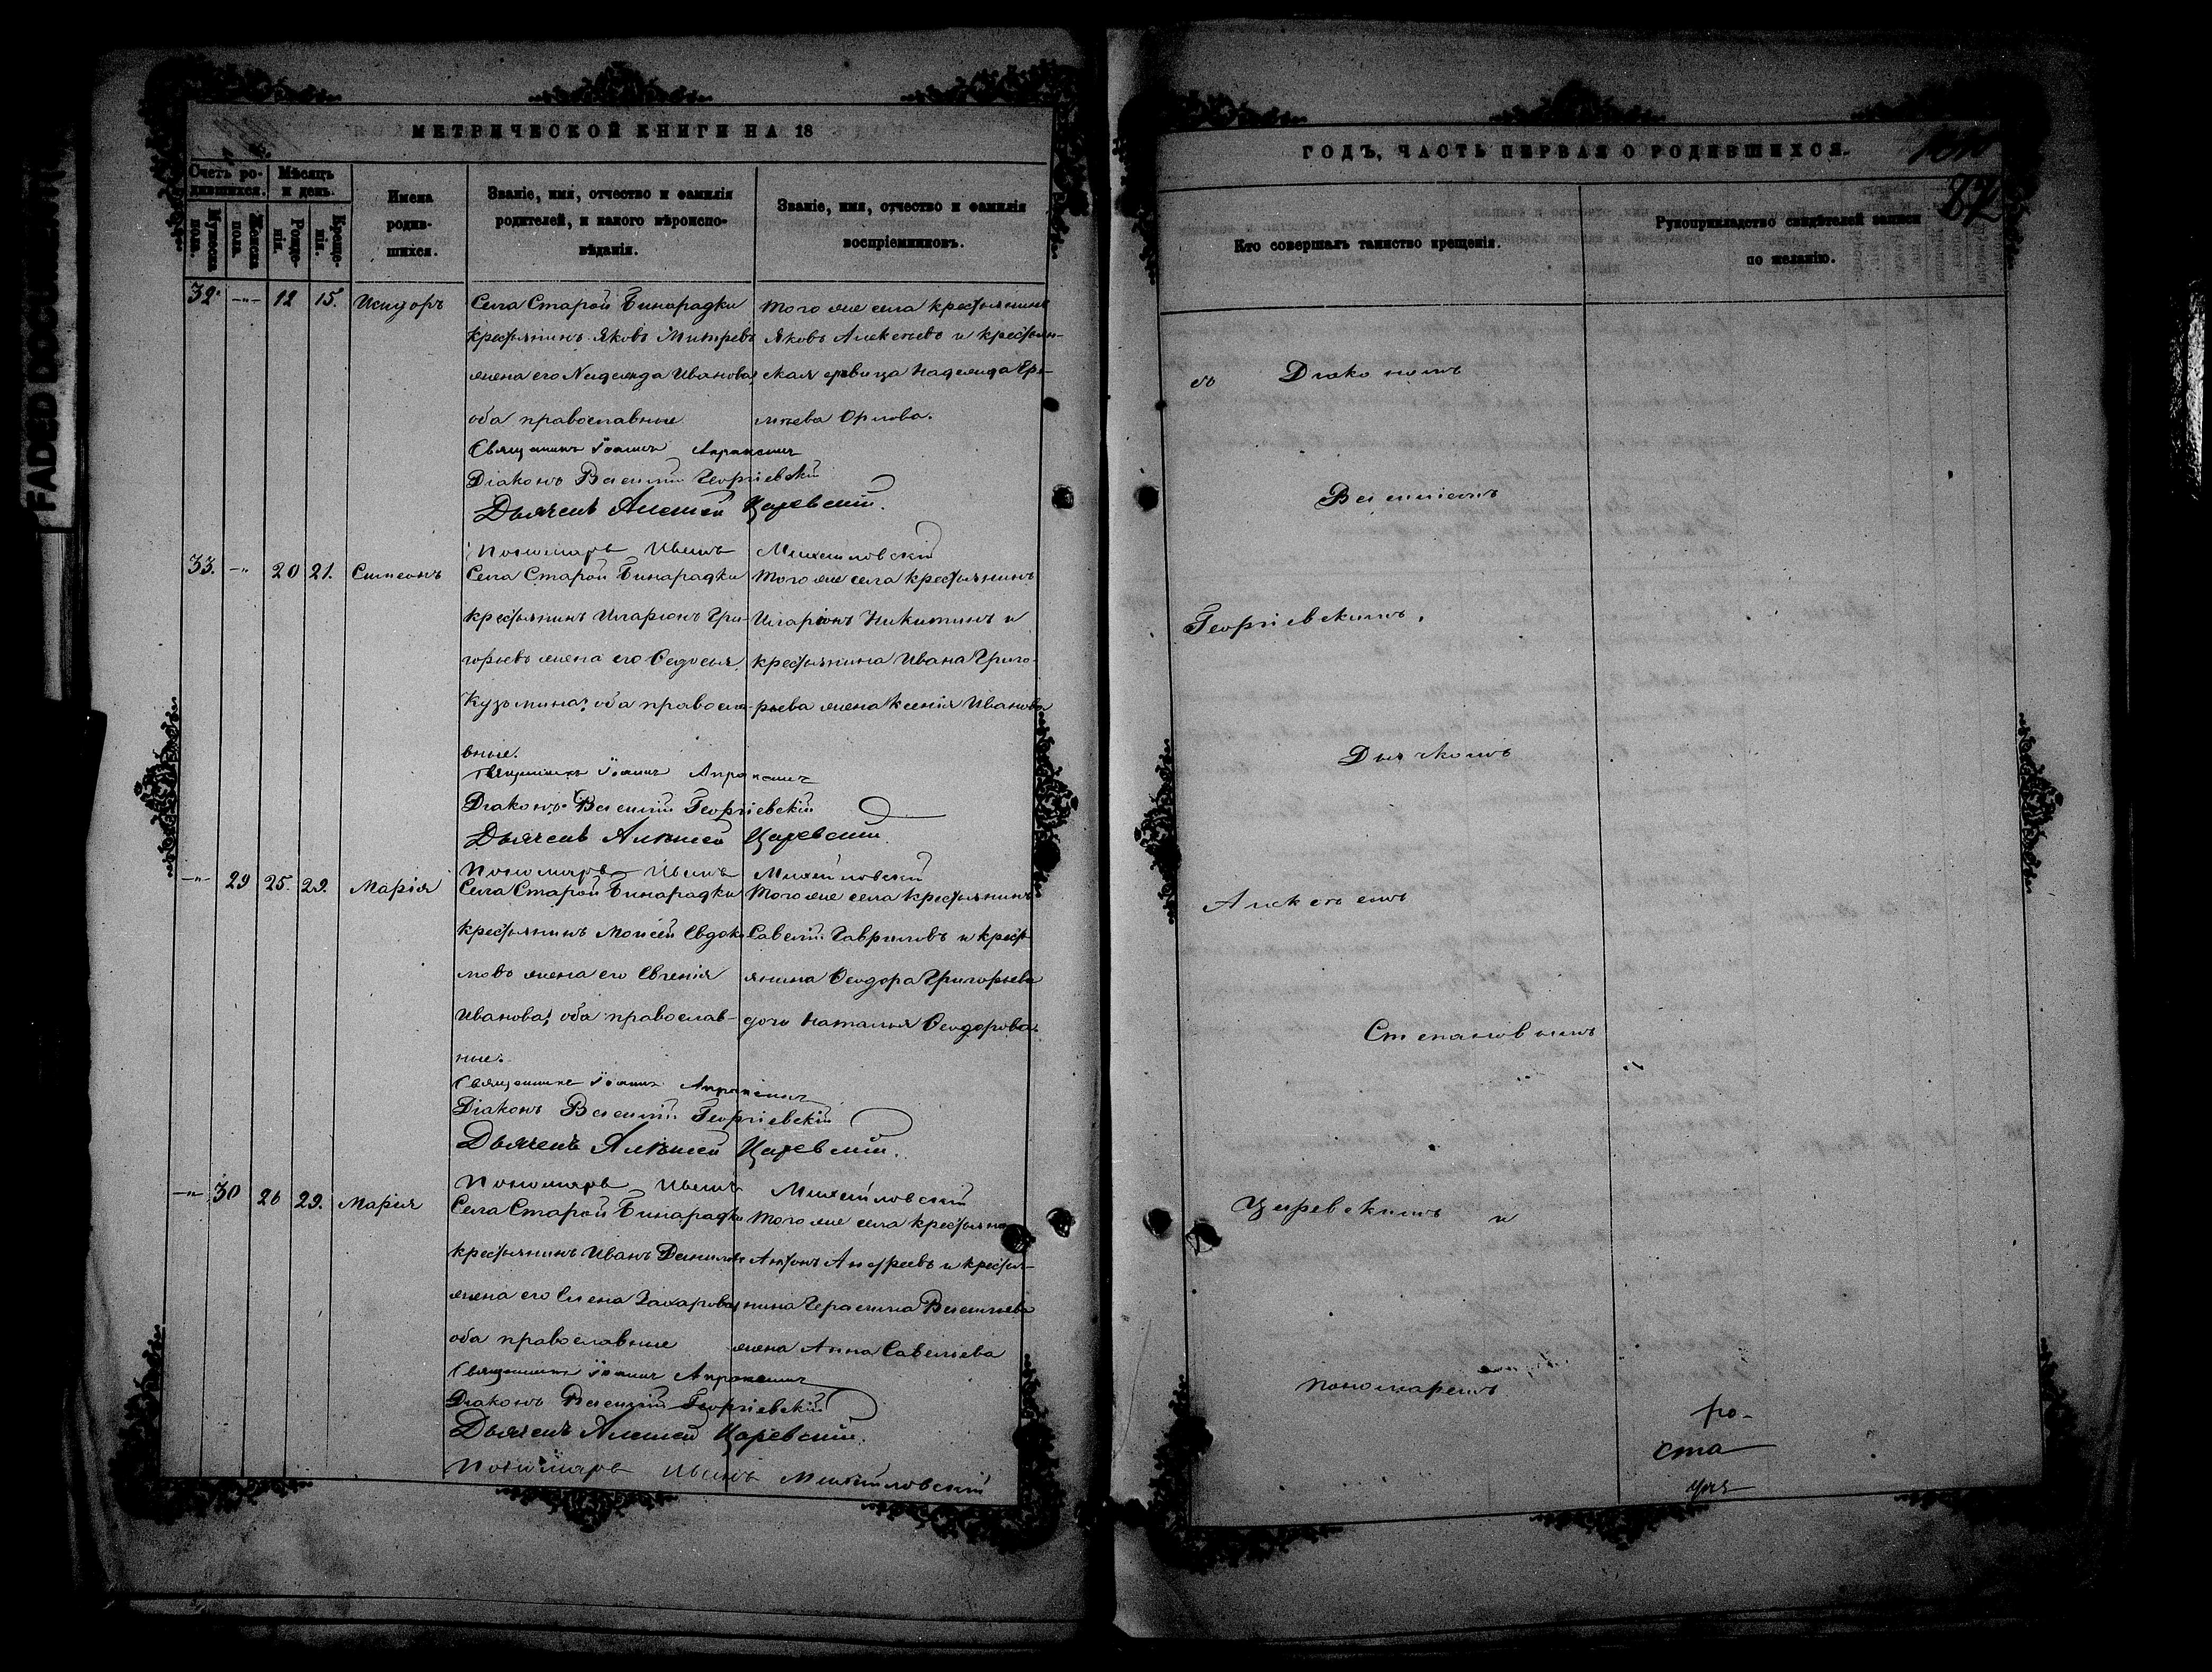 FADED DOCUMENT
МЕТРИЧЕСКОЙ КНИГИ НА 18
Счетъ ро-
дившихся.
Мужеска
пола.
Женска
пола.
Мѣсяцъ
и день.
Рожде-
нія.
Креще-
нія.
Имена
родив-
шихся.
Званіе, имя, отчество и фамилія
родителей, и какого вѣроиспо-
вѣданія.
Званіе, имя, отчество и фамилія
воспріемниковъ.
32. -"- 12 15. Исидоръ
Села Старой Бинарадки
крестьянинъ Яковъ Митревъ
жена его Надежда Иванова,
оба православные
Того же села крестьянинъ
Яковъ Алексѣевъ и крестьян-
ская дѣвица Надежда
Орлова.
Священникъ Іоаннъ
Діаконъ Василій Георгіевскій
Дьячекъ Алексѣй Царевскій.
Пономарь Иванъ Михайловскій
33. -"- 20 21. Симеонъ
Села Старой Бинарадки
крестьянинъ Иларіонъ Гри-
горьевъ жена его Ѳедосья
Кузьмина, оба правосла-
вные.
Того же села крестьянинъ
Иларіонъ Никитинъ и
крестьянина Ивана Григо-
рьева жена Ксенія Иванова
Священникъ Іоаннъ
Діаконъ Василій Георгіевскій
Дьячекъ Алексѣй Царевскій
Пономарь Иванъ Михайловскій
-"- 29 25. 29. Марія
Села Старой Бинарадки
крестьянинъ Моисей Евдоки
мовъ жена его Евгенія
Иванова, оба православ-
ные.
Того же села крестьянинъ
Савелій Гавриловъ и кресть
янина Ѳеодора Григорьева
дочь Наталья Ѳеодорова.
Священникъ Іоаннъ
Діаконъ Василій Георгіевскій
Дьячекъ Алексѣй Царевскій.
Пономарь Иванъ Михайловскій
-"- 30 26 29. Марія
Села Старой Бинарадки
крестьянинъ Иванъ Даниловъ
жена его Елена Захарова,
оба православные
Того же села крестьянинъ
Антонъ Андреевъ и крестья-
нина Герасима Васильева
жена Анна Савельева
Священникъ Іоаннъ
Діаконъ Василій Георгіевскій
Дьячекъ Алексѣй Царевскій.
Пономарь Иванъ Михайловскій
ГОДЪ, ЧАСТЬ ПЕРВАЯ О РОДИВШИХСЯ.
87
Кто совершалъ таинство крещенія.
Рукоприкладство свидѣтелей записи
по желанію.
съ Діакономъ
Василіемъ
Георгіевскимъ,
Дьячкомъ
Алексѣемъ
Степановымъ
Царевскимъ и
пономаремъ
ро-
ста